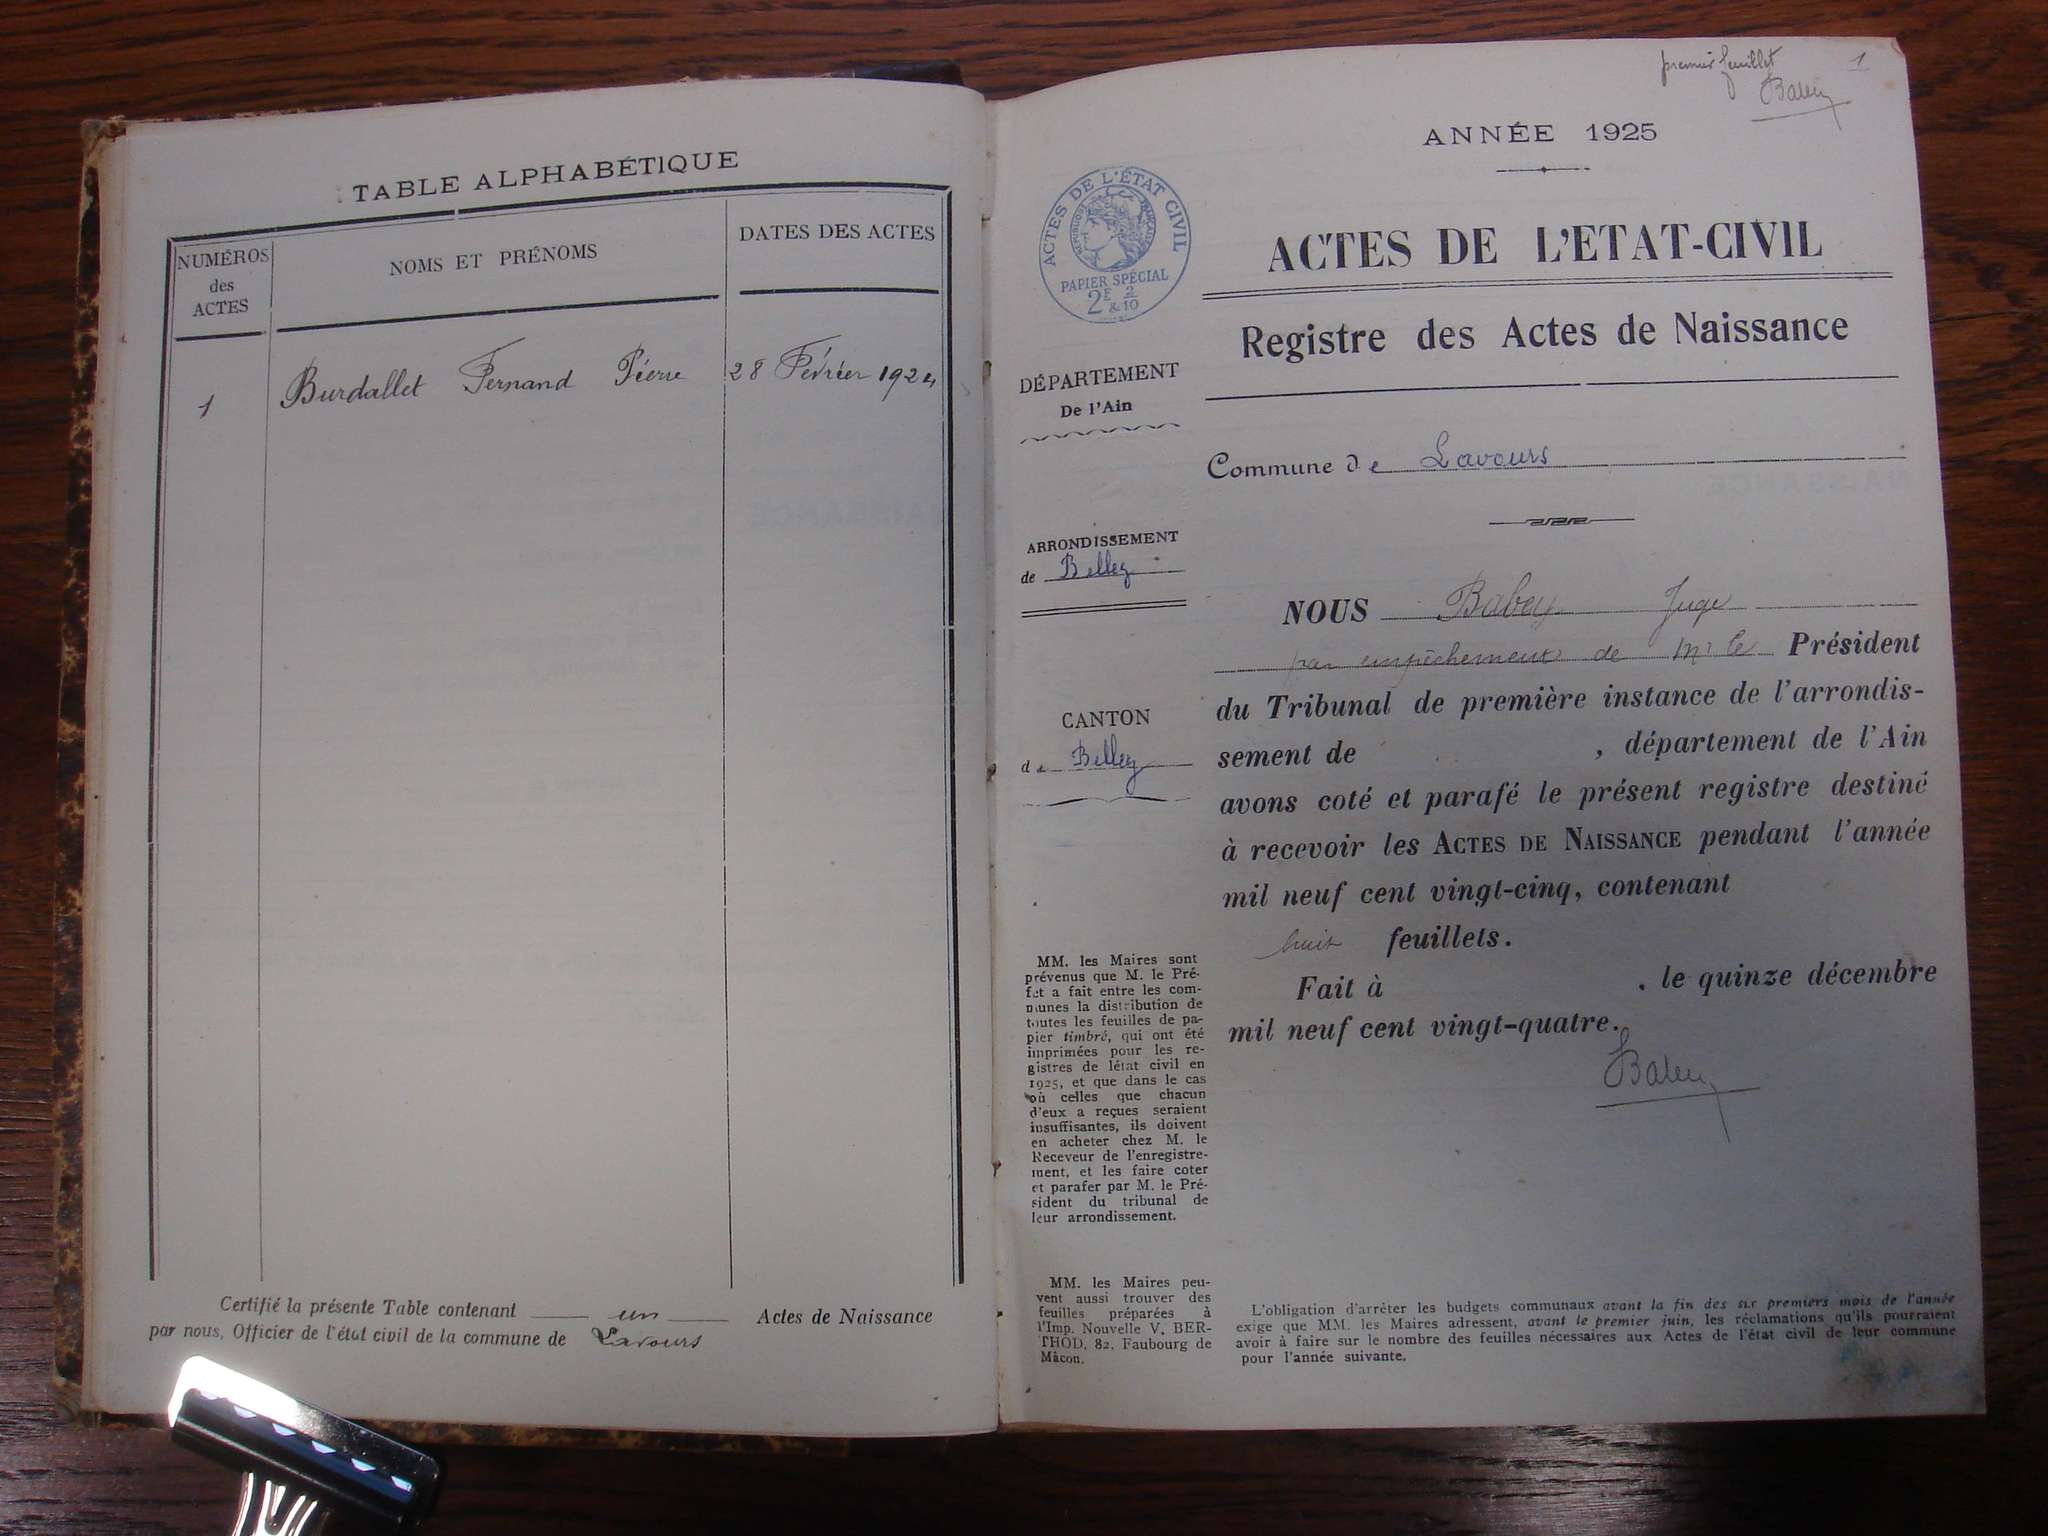 TABLE ALPHABÉTIQUE
NUMÉROS
des
ACTES
NOMS ET PRÉNOMS
DATES DES ACTES
1
Burdallet Fernand Pierre
28 Février 1924
Certifié la présente Table contenant un Actes de Naissance
par nous, Officier de l'état civil de la commune de Lavours
premier feuillet
1
Babey
ANNÉE 1925
ACTES DE L'ÉTAT CIVIL
RÉPUBLIQUE FRANÇAISE
PAPIER SPÉCIAL
2F 2
& 10
ACTES DE L'ETAT-CIVIL
Registre des Actes de Naissance
DÉPARTEMENT
De l'Ain
Commune de Lavours
ARRONDISSEMENT
de Belley
CANTON
de Belley
NOUS Babey Juge
par empêchement de Mr le Président
du Tribunal de première instance de l'arrondis-
sement de , département de l'Ain
avons coté et parafé le présent registre destiné
à recevoir les ACTES DE NAISSANCE pendant l'année
mil neuf cent vingt-cinq, contenant
huit feuillets.
Fait à , le quinze décembre
mil neuf cent vingt-quatre.
Babey
MM. les Maires sont
prévenus que M. le Pré-
fet a fait entre les com-
munes la distribution de
toutes les feuilles de pa-
pier timbré, qui ont été
imprimées pour les re-
gistres de létat civil en
1925, et que dans le cas
où celles que chacun
d'eux a reçues seraient
insuffisantes, ils doivent
en acheter chez M. le
Receveur de l'enregistre-
ment, et les faire coter
et parafer par M. le Pré-
sident du tribunal de
leur arrondissement.
MM. les Maires peu-
vent aussi trouver des
feuilles préparées à
l'Imp. Nouvelle V. BER-
THOD, 82, Faubourg de
Mâcon.
L'obligation d'arrêter les budgets communaux avant la fin des six premiers mois de l'année
exige que MM. les Maires adressent, avant le premier juin, les réclamations qu'ils pourraient
avoir à faire sur le nombre des feuilles nécessaires aux Actes de l'état civil de leur commune
pour l'année suivante.